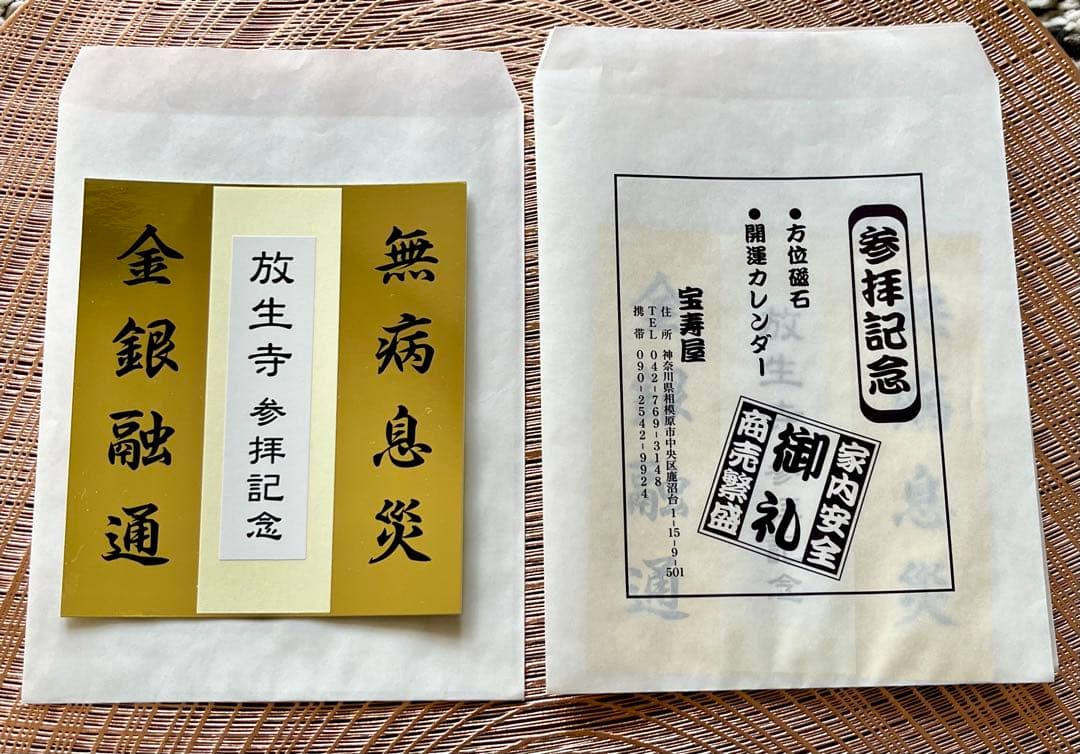 無病息災
放生寺 参拝記念
金銀融通
参拝記念
●方位磁石
●開運カレンダー
宝寿屋
住所 神奈川県相模原市中央区鹿沼台1-15-9-501
TEL 042-769-3148
携帯 090-2542-9924
家内安全
御礼
商売繁盛
無病息災
放生寺 参拝記念
金銀融通